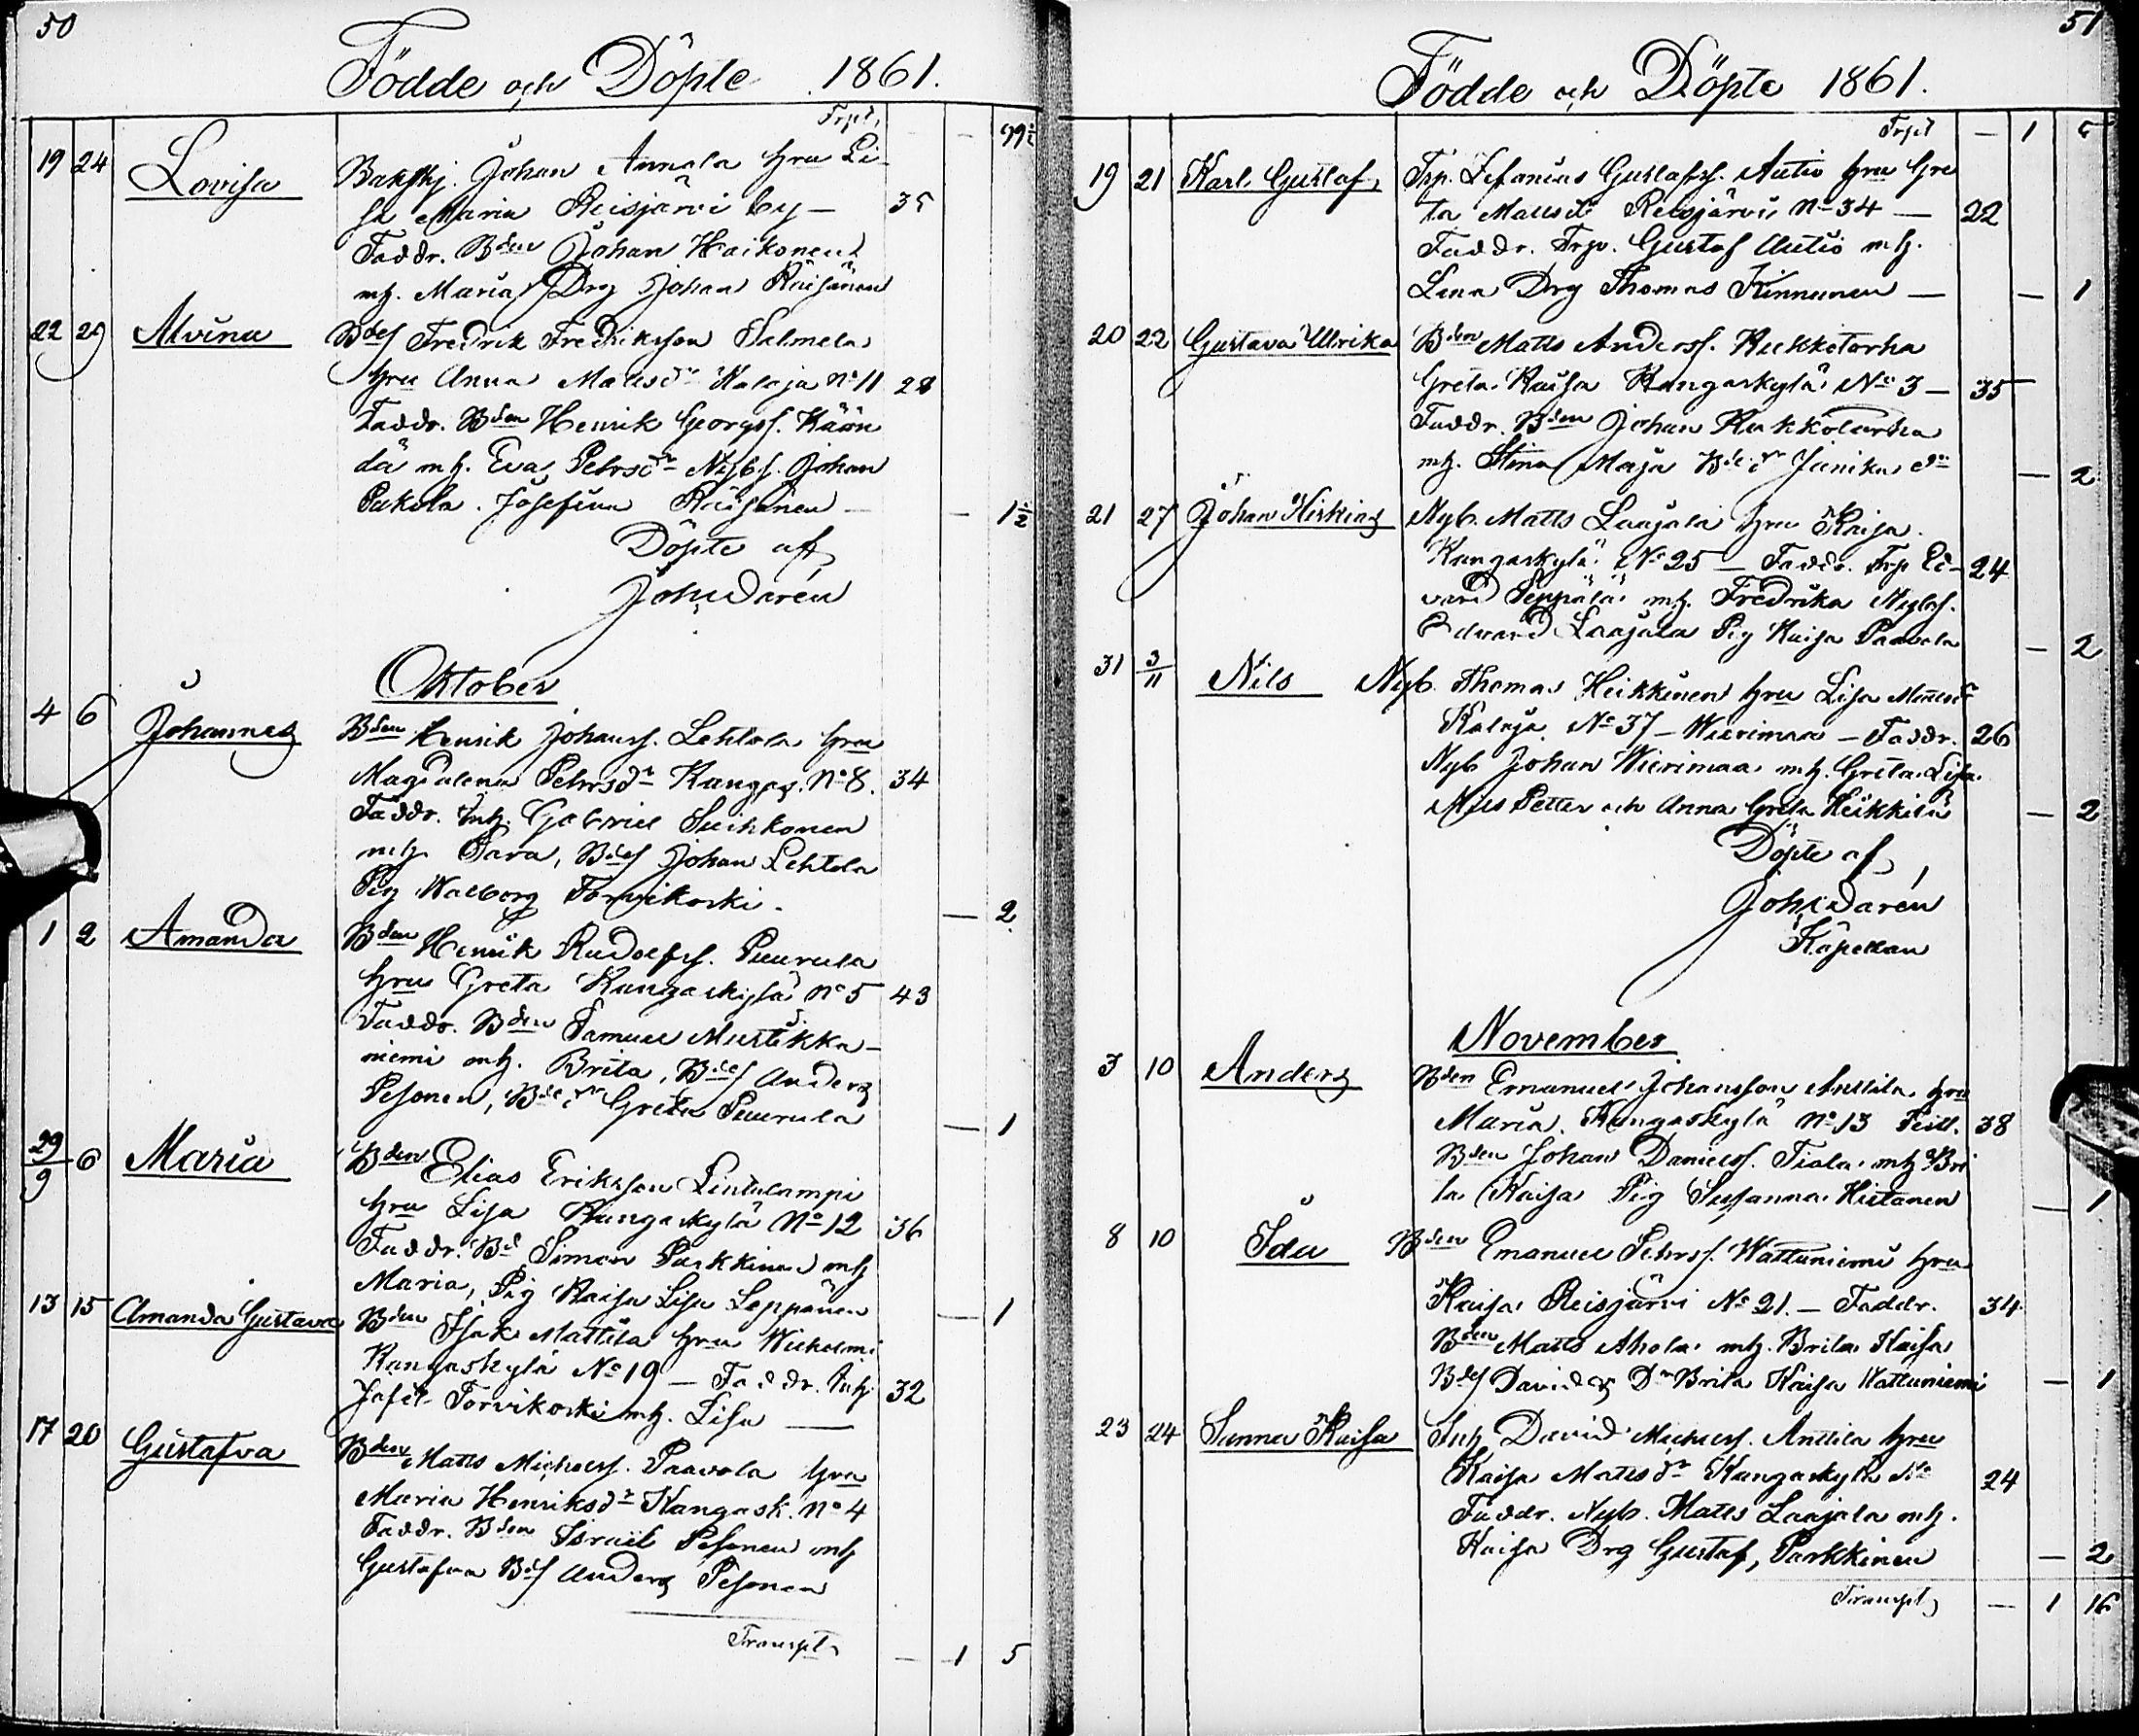 50
Födde och Döpte 1861.
Trpt, — 99½
19 24 Lovisa Johan Annala hru Li-
sa Maria Reisjärvi by — 35
Faddr. Bden Johan Haikonen
mh. Maria, Drg Johan Räisänen
22 29 Alvina Bdes Fredrik Fredriksson Salmela
hru Anna Mattsdr Kalaja No 11 28
Faddr. Bden Henrik Georgss. Kään-
dä mh. Eva Pehrsdr Nybs. Johan
Pakola. Josefina Räisänen — — 1½
Döpte af
Joh. Darén
Oktober
4 6 Johannes Bden Henrik Johanss. Lehtola hru
Magdalena Pehrsdr Kangas. No 8. 34
Faddr. Inh. Gabriel Suihkonen
mh. Sara, Bdes Johan Lehtola
Pig Walborg Torvikoski. — 2
1 2 Amanda Bden Henrik Rudolfss. Puurula
hru Greta Kangaskylä No 5 43
Faddr. Bden Samuel Mustikka-
niemi mh. Brita, Bdes Anders
Pesonen, Bdedr Greta Puurula — 1
29/9 6 Maria Bden Elias Eriksson Lintulampi
hru Lisa Kangaskylä No 12 36
Faddr. Bd Simon Parkkinen mh
Maria, Pig Kaisa Lisa Leppänen — 1
13 15 Amanda Gustava Bden Isak Mattila hru Wilhelmi
Kangaskylä No 19 — Faddr. Inh. 32
Jafet Torvikoski mh. Lisa —
17 20 Gustafva Bden Matts Michelss. Paavola hru
Maria Henriksdr Kangask. No 4
Faddr. Bden Israël Pesonen mh
Gustafva Bds Anders Pesonen
Transpt, — 1 5
51
Födde och Döpte 1861.
Trpt — 1 5
19 21 Karl Gustaf, Trp. Zefanias Gustafss. Autio hru Gre
ta Mattsdr Reisjärvi No 34 — 22
Faddr. Trp. Gustaf Autio mh.
Lena Drg Thomas Kinnunen — — 1
20 22 Gustava Ulrika Bden Matts Anderss. Kukkotarha
Greta Kaisa Kangaskylä No 3 — 35
Faddr. Bden Johan Kukkotarha
mh. Stina Maja Bdedr — 2
21 27 Johan Hiskias Nyb. Matts Laajala hru Kaisa.
Kangaskylä No 25 — Faddr. Trp Ed- 24
vard Seppälä mh. Fredrika Nybs.
Edvard Laajala Pig Kaisa Paavola — 2
31 3/11 Nils Nyb. Thomas Heikkinen hru Lisa
Kalaja No 37 — Wierimaa — Faddr. 26
Nyb Johan Wierimaa mh. Greta Lisa
Nils Petter och Anna Greta Heikkilä — 2
Döpte af
Joh. Darén
Kapellan
November
3 10 Anders Bden Emanuel Johansson Anttila hru
Maria. Kangaskylä No 13 38
Bden Johan Danielss. Tiala mh Bri
ta Kaisa Pig Susanna Hietanen — 1
8 10 Ida Bden Emanuel Pehrss. Wattuniemi hru
Kaisa Reisjärvi No 21. — Faddr. 34
Bden Matts Ahola mh. Brita Kaisa
Bds David & Dr Brita Kaisa Wattuniemi — 1
23 24 Sanna Kaisa Inh David Michelss. Anttila hru
Kaisa Mattsdr Kangaskylä No 24
Faddr. Nyb. Matts Laajala mh.
Kaisa Drg Gustaf, Parkkinen — 2
Transpt, — 1 16